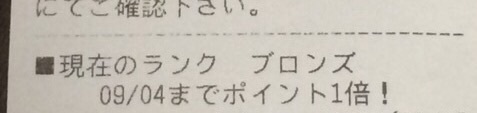 にてご確認下さい。
■現在のランク　ブロンズ
09/04までポイント1倍！